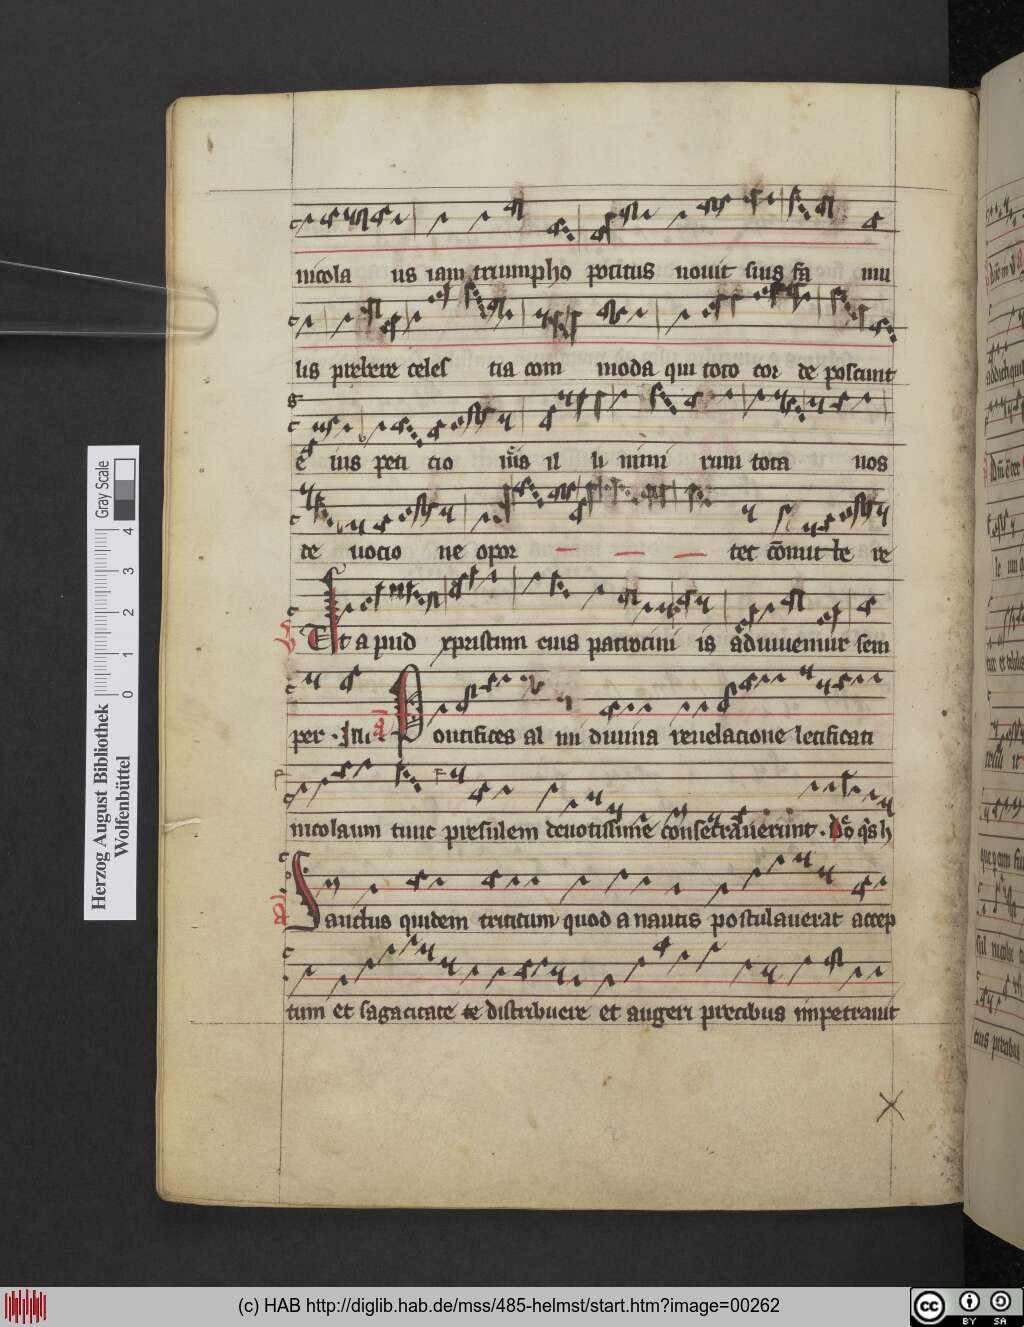 nicola us iam triumpho potitus nouit suis fa mu
lis prebere celes tia com moda qui toto cor de poscunt
e ius peti cio nis il li nimi rum tota nos
te uocio ne opor tet comit te re
Et apud xpristum eius patrocini is adiuuemur sem
per. In
Pontifices al mi diuina reuelacione letificati
nicolaum tunc presulem deuotissime consecrauerunt. Do qs h
Sanctus quidem triticum quod a nautis postulauerat accep
tum et sagacitate te distribuere et augeri precibus impetrauit
Herzog August Bibliothek
Wolfenbüttel
0 1 2 3 4
Gray Scale
(c) HAB http://diglib.hab.de/mss/485-helmst/start.htm?image=00262
cc BY SA